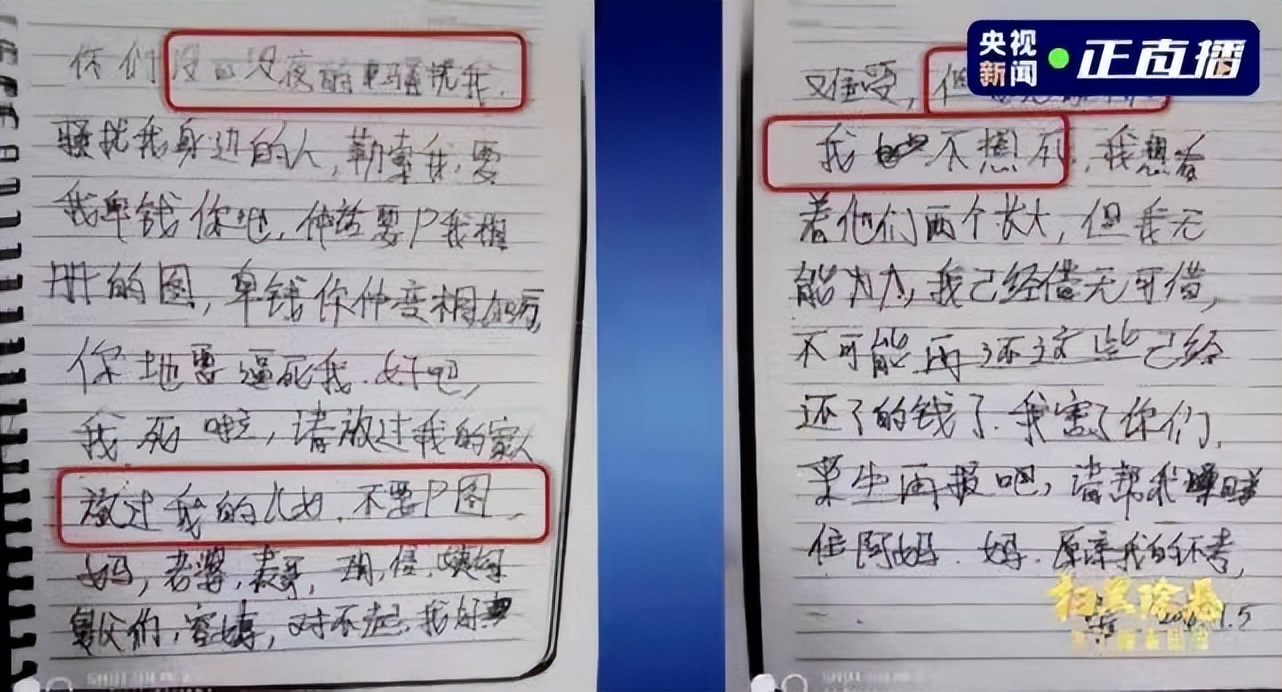 你们没日没夜的骚扰我.
骚扰我身边的人,勒索我,要
我畀钱你地,仲话要P我相
册的图,畀钱你仲变相加厉,
你地要逼死我.好吧,
我死啦,请放过我的家人
放过我的儿女.不要P图,
妈,老婆,表哥,姨
舅父们,对不起.我好
央视新闻 正直播
又难受,但
我 不想死,我想看
着他们两个长大,但我无
能为力,我已经借无可借,
不可能再还这些已经
还了的钱了.我害了你们,
来生再报吧,请帮我
住阿妈.妈.原谅我的不孝,
扫黑除恶
1.5